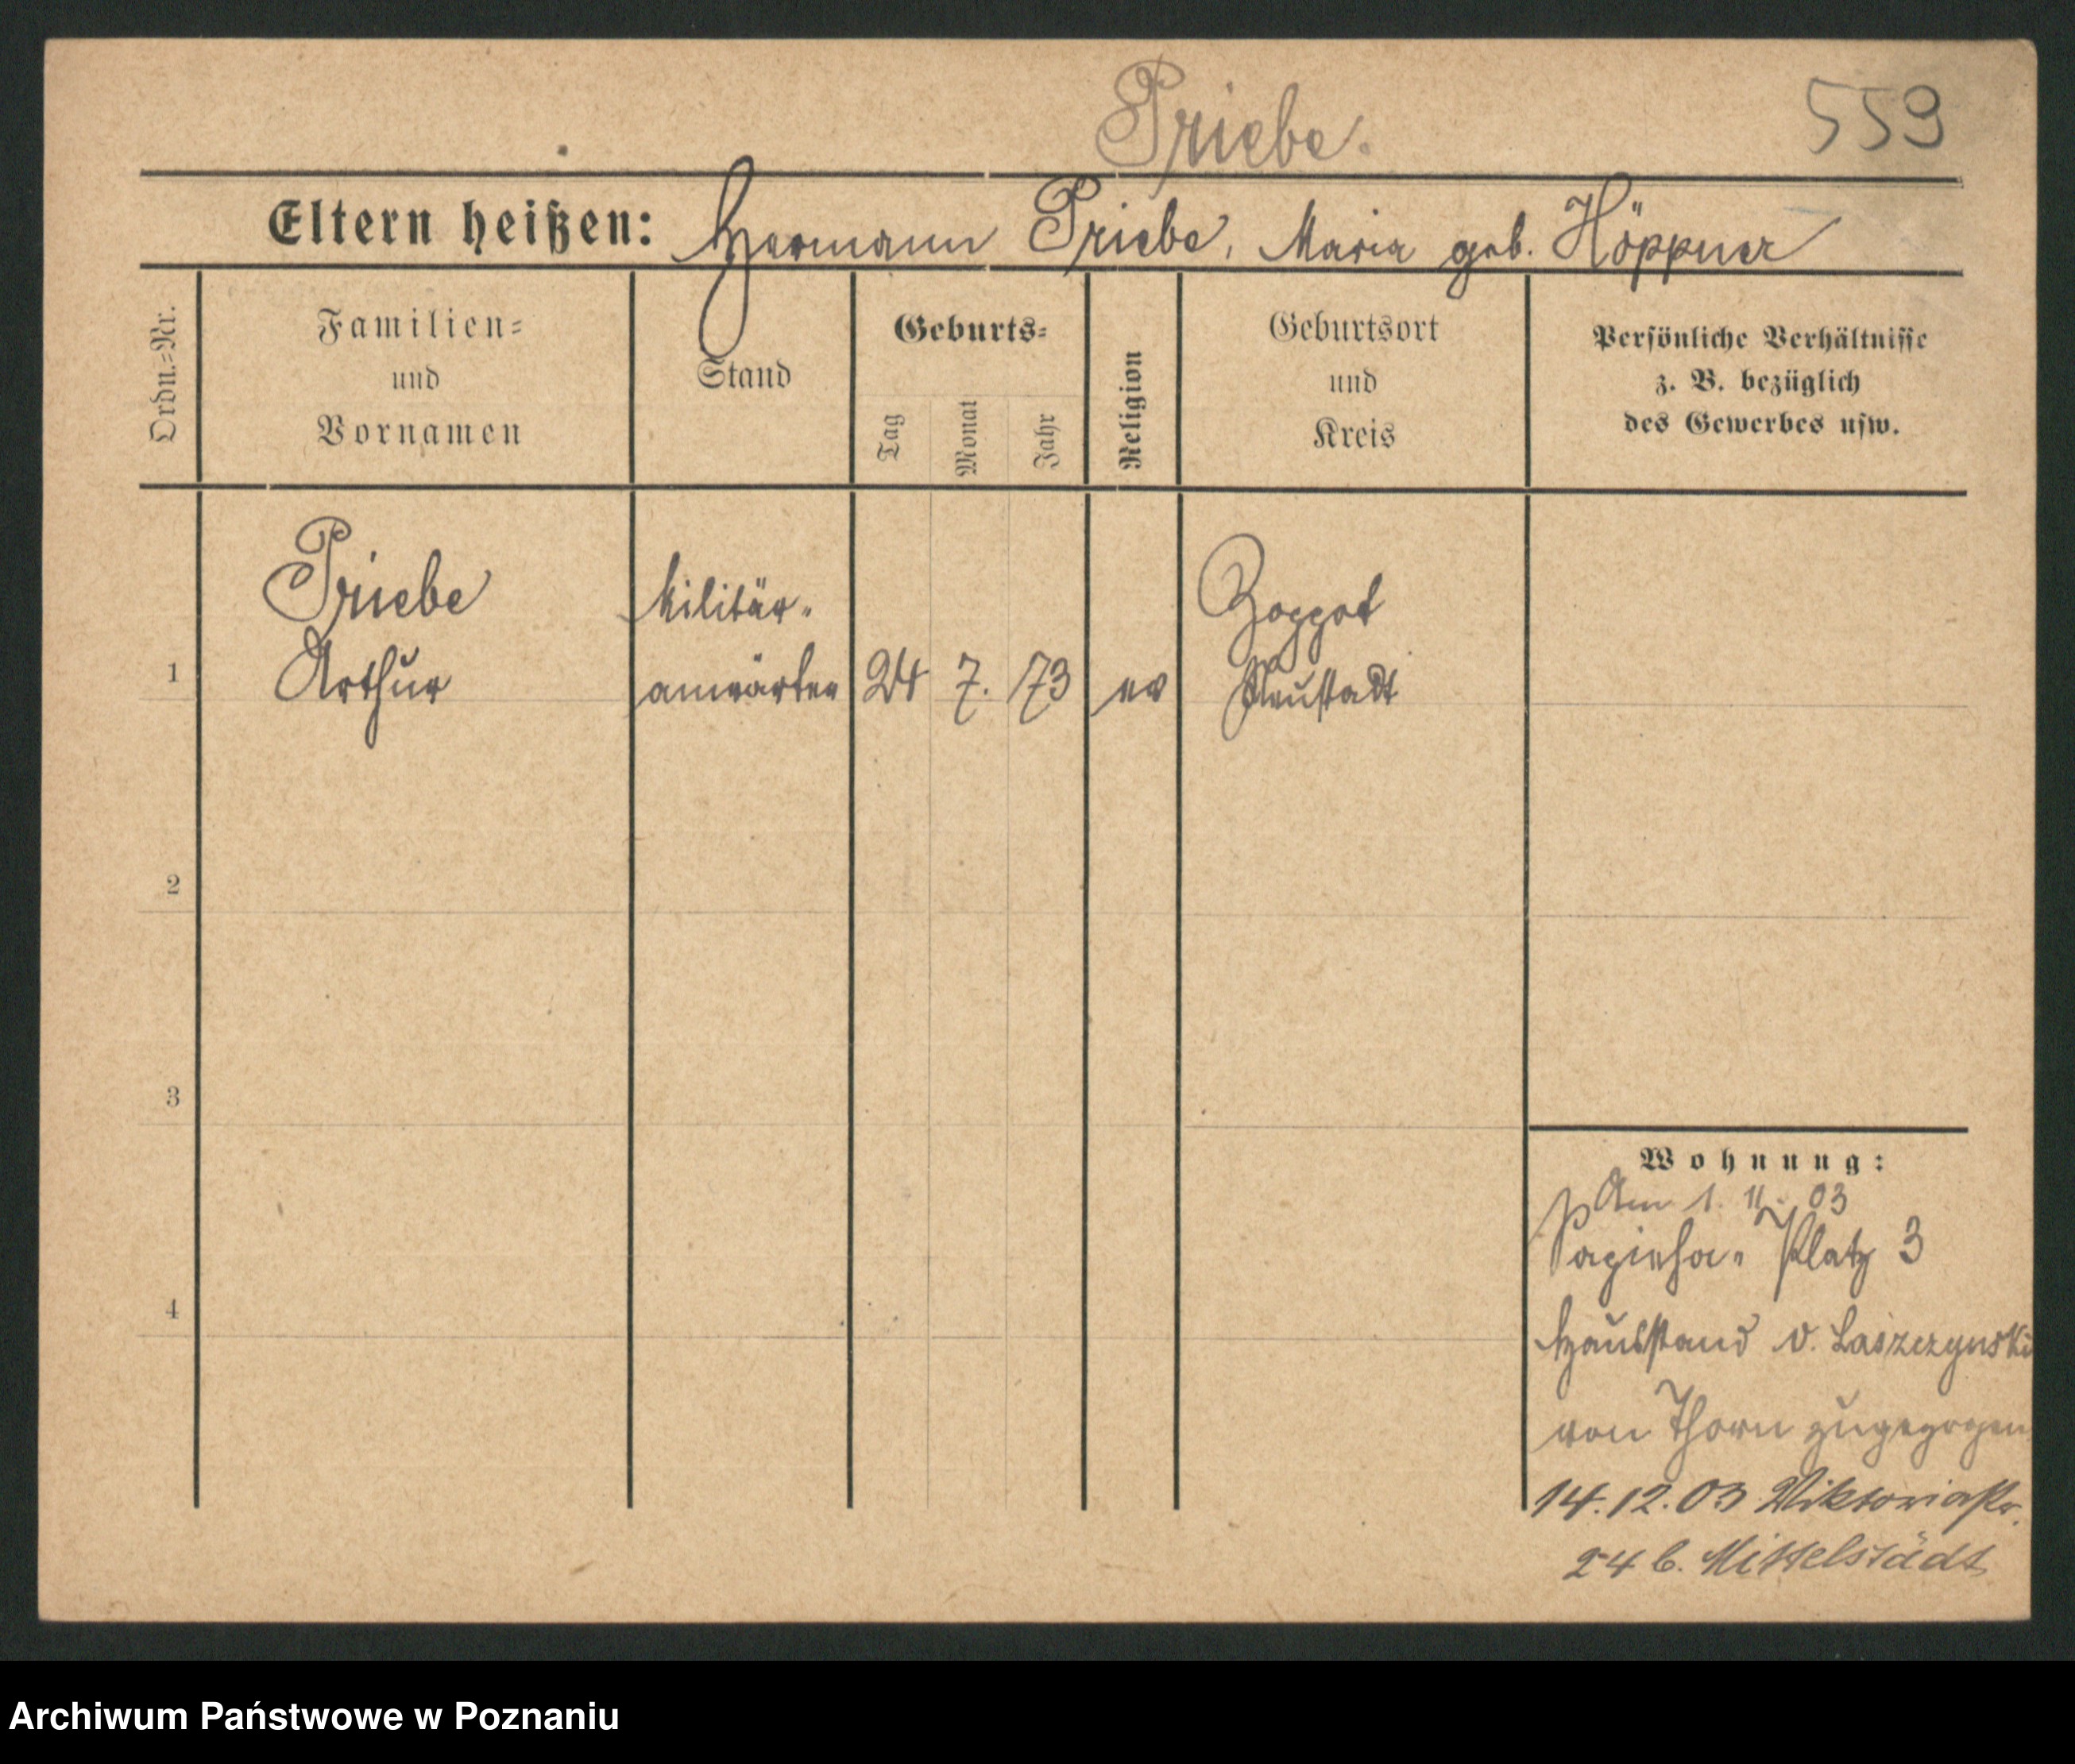 Priebe. 559
Eltern heißen: Hermann Priebe, Maria geb. Höppner
Ordn.=Nr.
Familien=
und
Vornamen
Stand
Geburts=
Tag
Monat
Jahr
Religion
Geburtsort
und
Kreis
Persönliche Verhältnisse
z. B. bezüglich
des Gewerbes usw.
Priebe Militär- Zoppot
1 Arthur anwärter 24 7. 73 ev Neustadt
2
3
4
Wohnung:
Am 1. 11. 03
Sapieha- Platz 3
Hausstand v. Laszczynski
von Thorn zugezogen
14.12.03 Viktoriastr.
24 b. Mittelstädt
Archiwum Państwowe w Poznaniu